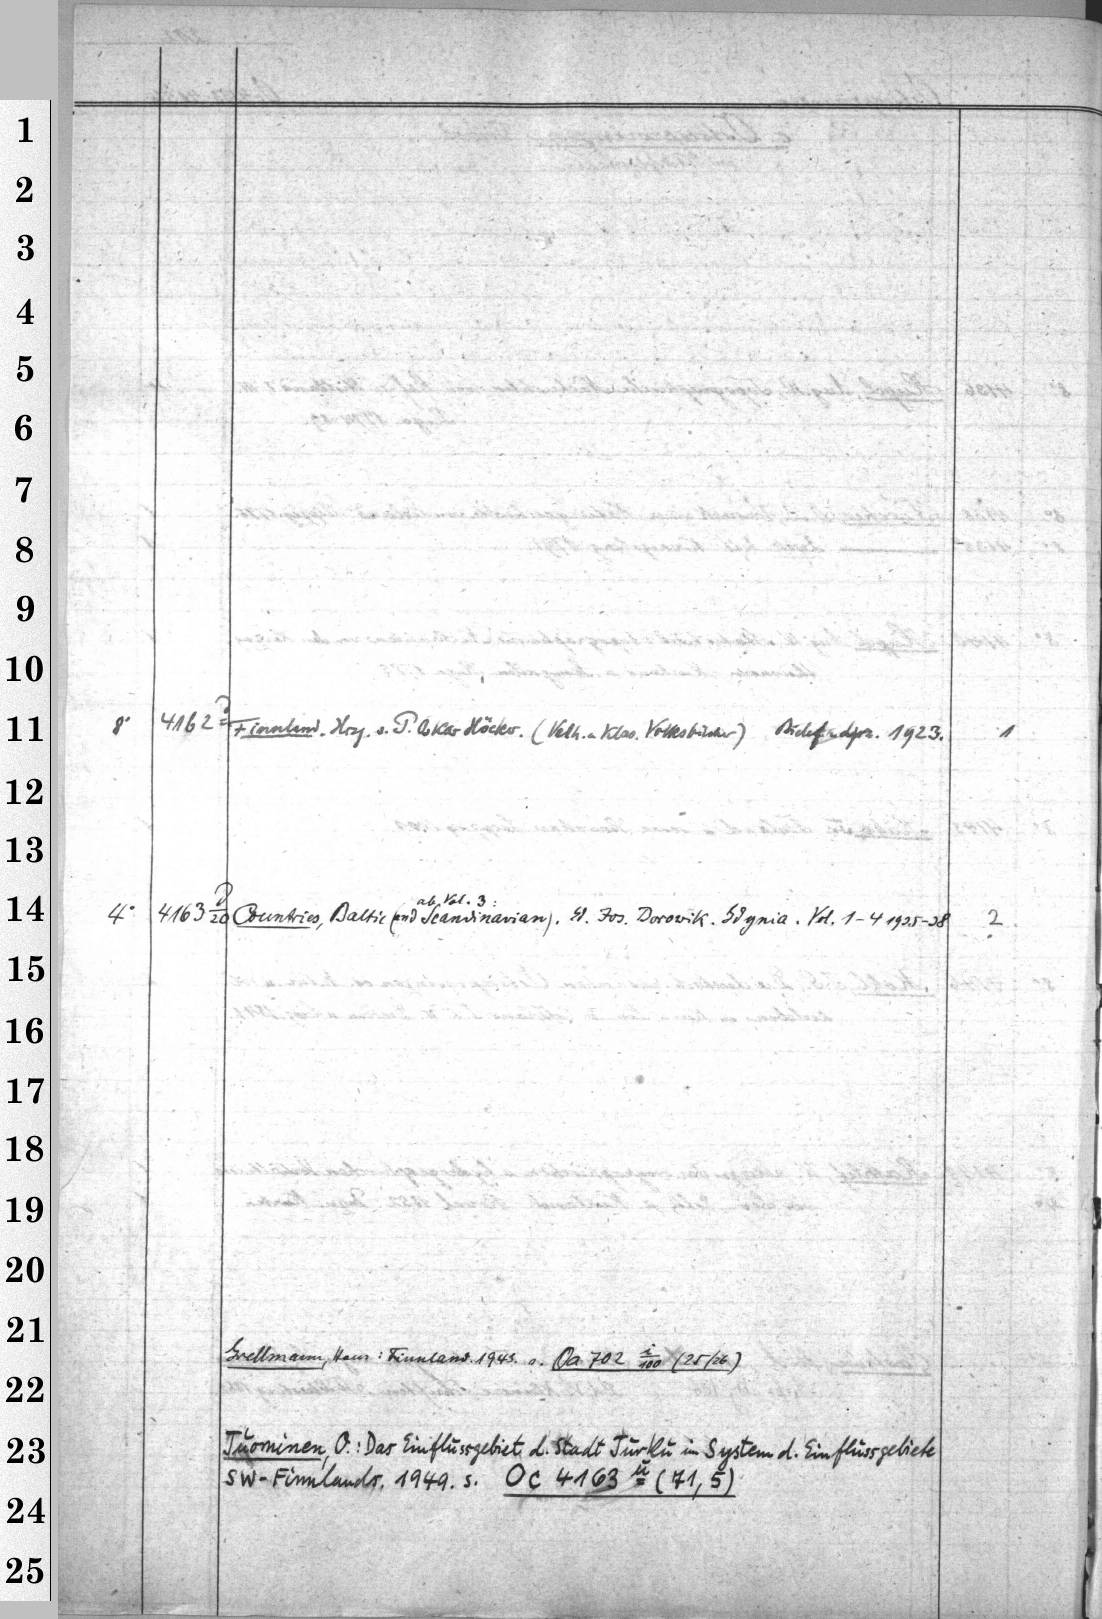 1
2
3
4
5
6
7
8
9
10
11
8° 4162 Finnland. Hrg. v. P. Oskar Höcker. (Velh. u. Klas. Volksbücher) Bielef. u. Lpz. 1923. 1
12
13
ab Vol. 3:
14
4° 4163 20 Countries, Baltic (and Scandinavian). Ed. Jos. Borowik. Gdynia. Vol. 1-4 1935-38 2
15
16
17
18
19
20
21
Grellmann, Hans: Finnland. 1943. s. Oa 702 i/100 (25/26)
22
23
Tuominen, O.: Das Einflussgebiet d. Stadt Turku im System d. Einflussgebiete
SW-Finnlands. 1949. s. Oc 4163 ü (71,5)
24
25